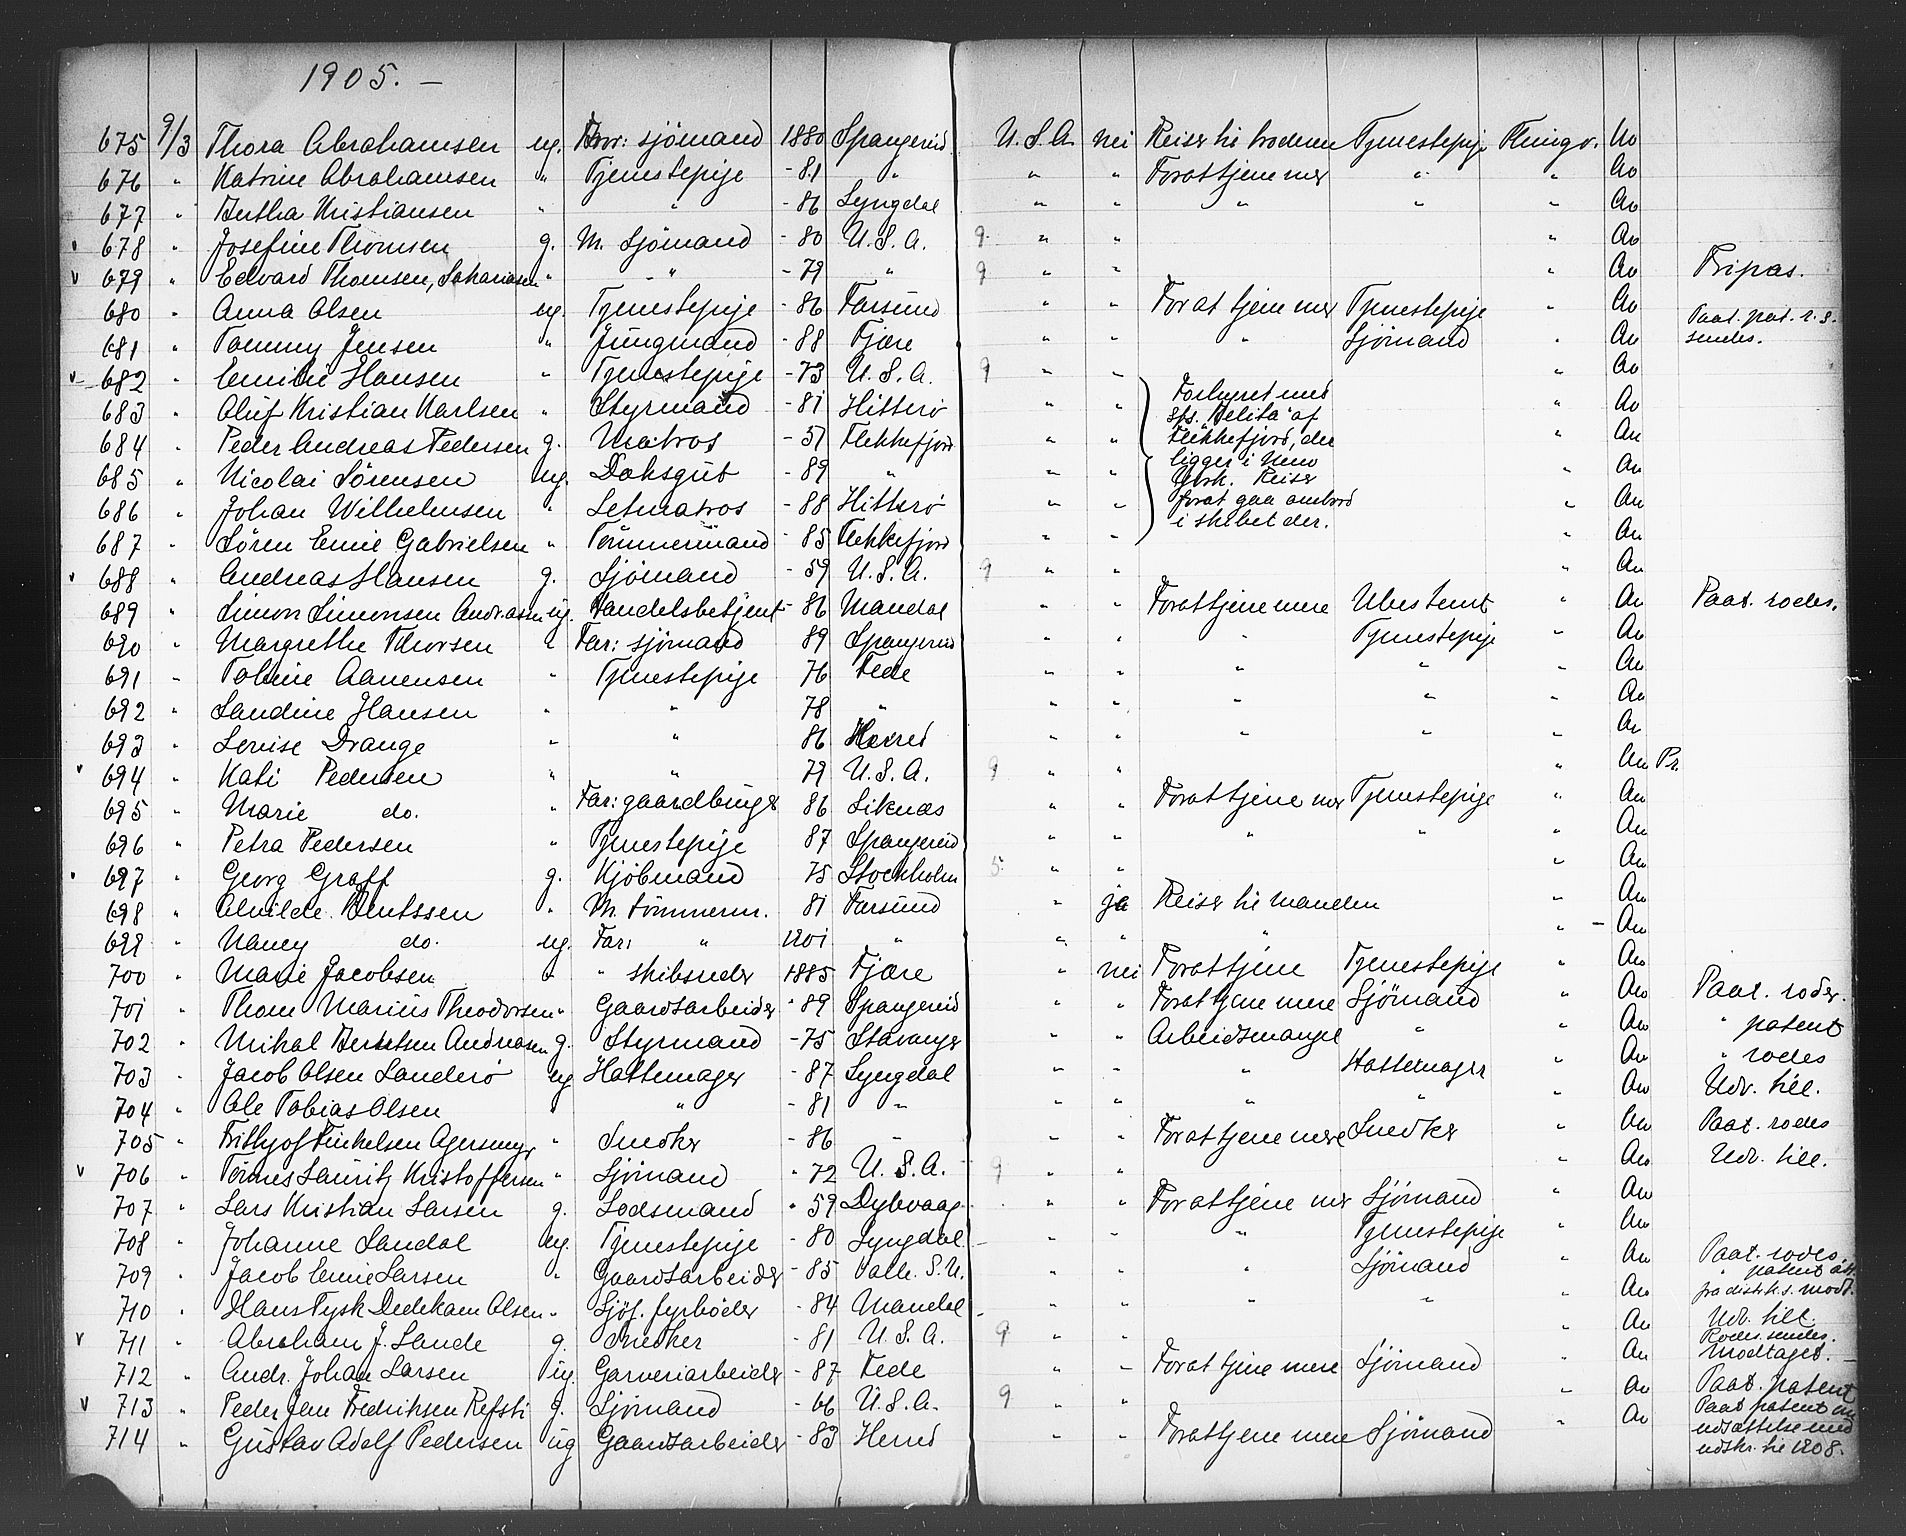 1905. —
675 9/3 Thora Abrahamsen ug. Bror: sjömand 1880 Spangereid U.S.A. nei Reiser til broderen Tjenestepige Thingv. Ao
676 " Katrine Abrahamsen " Tjenestepige - 81 " " " Forat tjene mer " " Ao
677 " Bertha Kristiansen " " - 86 Lyngdal " " " " " Ao
678 " Josefine Thomsen g. M. Sjömand - 80 U.S.A. 9 " " " Ao
v 679 " Edvard Thomsen, Sakariasen " - " - 79 " 9 " " " Ao Pripas.
680 " Anna Olsen ug. Tjenestepige - 86 Farsund " " Forat tjene mer Tjenestepige " Ao
681 " Tommy Jensen " Jungmand - 88 Fjære " " " Sjömand " Ao Paat. pat. r. s. sendes.
v 682 " Emilie Hansen " Tjenestepige - 73 U.S.A. 9 " " " Ao
683 " Oluf Kristian Karlsen " Styrmand - 81 Hitterö " " Forhyret med " Ao
sks. "Delita" af
684 " Peder Andreas Pedersen g. Matros - 51 Flekkefjord " " Flekkefjord, der " Au
685 " Nicolai Sörensen ug. Daksgut - 89 " " " ligger i New " Au
York. Reiser
686 " Johan Wilhelmsen " Letmatros - 88 Hitterö " " forat gaa ombord " Au
i skibet der.
687 " Sören Emil Gabrielsen " Tömmermand - 85 Flekkefjord " " " Au
688 " Andreas Hansen g. Sjömand - 59 U.S.A. 9 " " " Au
689 " Simon Simonsen Andr.assen ug. Handelsbetjent - 86 Mandal " " Forat tjene mere Ubestemt " Au Paat. rodes.
690 " Margrethe Thorsen " Far: sjömand 89 Spangereid " " " Tjenestepige " Au
691 " Tobine Aanensen " Tjenestepige 76 Fede " " " " " Au
692 " Sandine Hansen " " 78 " " " " " " Au
693 " Lovise Drange " " 86 Herred " " " " " Au
v 694 " Kati Pedersen " " 79 U.S.A. 9 " " " Au Pr.
695 " Marie do. " Far: gaardbruger 86 Liknes " " Forat tjene mer Tjenestepige " Au
696 " Petra Pedersen " Tjenestepige 87 Spangereid " " " " " Au
697 " Georg Graff g. Kjöbmand 75 Stockholm 5. " " " Au
698 " Alvilde Berntssen " M. tömmerm. 81 Farsund " ja Reiser til manden " Au
699 " Nancy do. ug. Far: " 1901 " " " " " - Au
700 " Marie Jacobsen " " skibsreder 1885 Fjære " nei Forat tjene Tjenestepige " Au
701 " Thom Marius Theodorsen " Gaardsarbeider - 89 Spangereid " " Forat tjene mere Sjömand " Au Paat. rodes.
702 " Mikal Berntsen Andreasen g. Styrmand - 75 Stavanger " " Arbeidsmangel " " Au " patent
703 " Jacob Olsen Sanderö ug Hattemager - 87 Lyngdal " " " Hattemager " Au " rodes
704 " Ole Tobias Olsen " " - 81 " " " " " " Au Udv. till.
705 " Frithjof Finkelsen " Snedker - 86 " " " Forat tjene mere Snedker " Au Paat. rodes
v 706 " Tönnes Lauritz Kristoffersen " Sjömand - 72 U.S.A. 9 " " " Au Udv. till.
707 " Lars Kristian Larsen g. Lodsmand - 59 Dybvaag " " Forat tjene mer Sjömand " Au
708 " Johanne Sandal ug. Tjenestepige - 80 Lyngdal " " " Tjenestepige " Au
709 " Jacob Emil Larsen " Gaardsarbeider - 85 Valle. S.U. " " " Sjömand " Au Paat. rodes.
710 " Hans Tysk Dedekam Olsen " Sjöf. fyrböder - 84 Mandal " " " " " Au " patent
fra distrk. s. modt.
v 711 " Abraham J. Lande g. Snedker - 81 U.S.A. 9 " " " Au Udv. till.
712 " Andr. Johan Larsen ug. Garveriarbeider - 87 Fede " " Forat tjene mere Sjömand " Au Rodes. sendes. Modtaget. —
v 713 " Peder Jem Fredriksen Refsti g. Sjömand - 66 U.S.A. 9 " " " Au Paat. patent
714 " Gustav Adolf Pedersen ug Gaardsarbeider - 83 Herred " " Forat tjene mere Sjömand " Au Paat. patent
udsættelse med
udskr. til 1908.